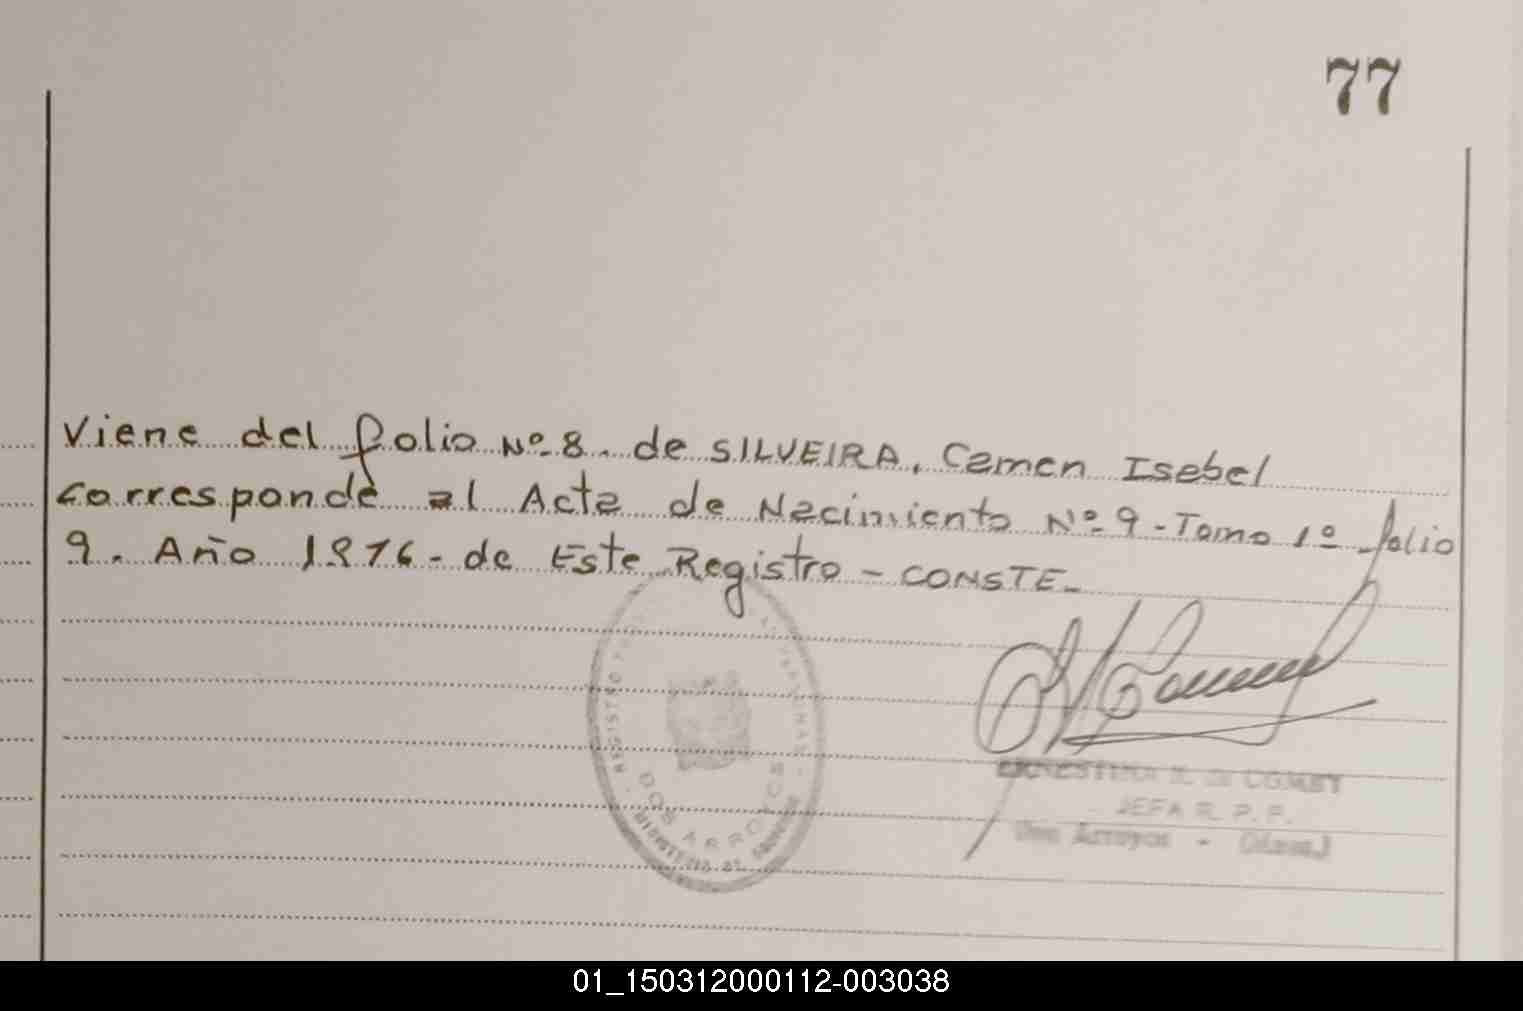 77
Viene del folio Nº 8. de SILVEIRA, Camen Isabel
Corresponde al Acta de Nacimiento Nº 9 - Tomo 1º folio
9. Año 1976 - de Este Registro - CONSTE -
REGISTRO
DOS ARROYOS
JEFA R. P. P.
Dos Arroyos
01_150312000112-003038